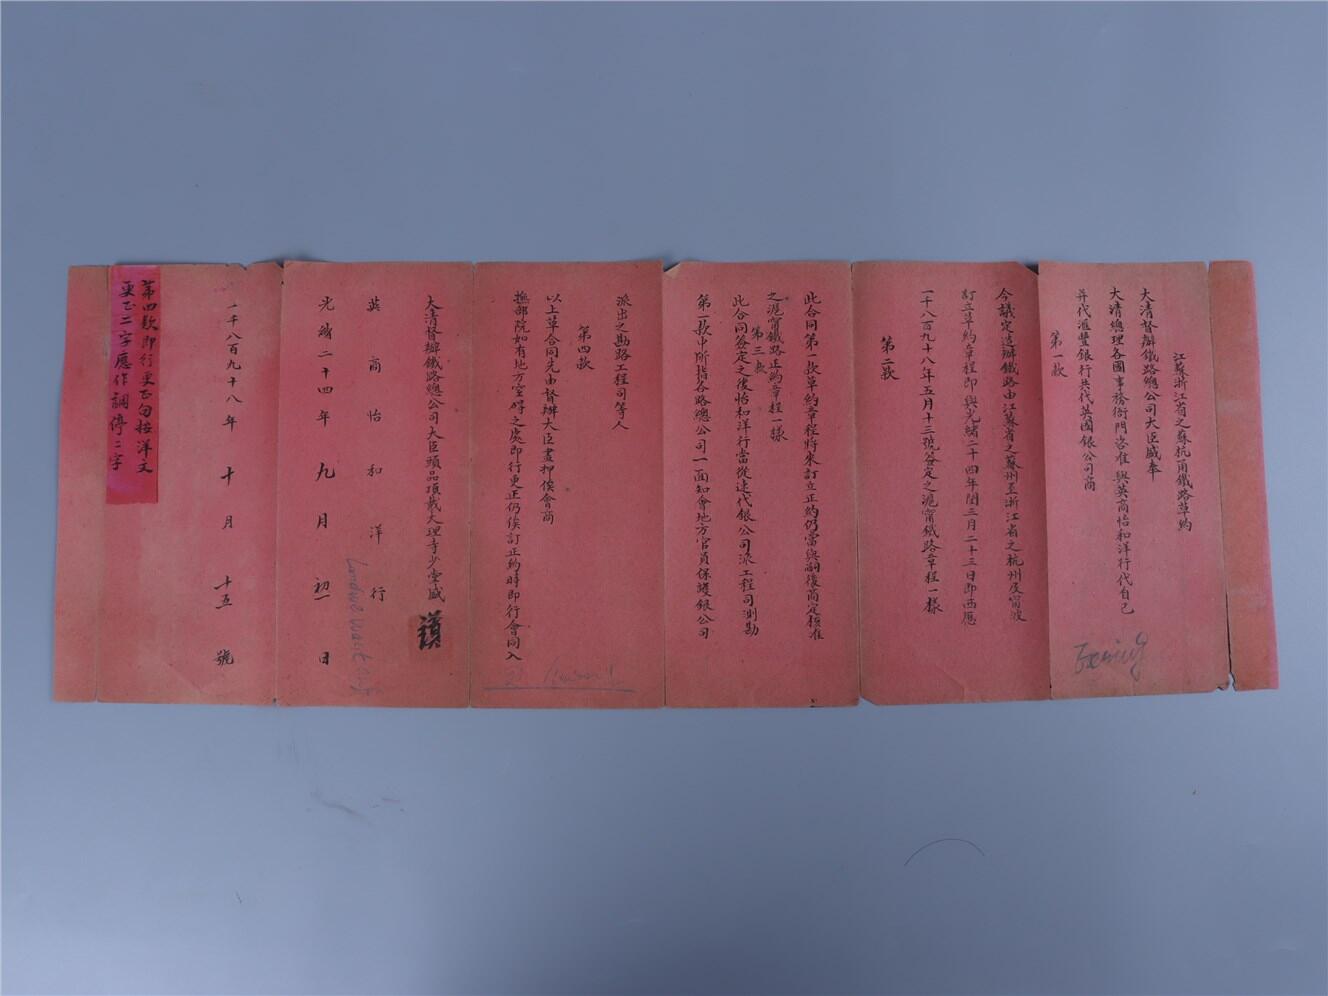 江蘇浙江省之蘇杭甬鐵路草約
大清督辦鐵路總公司大臣盛奉
大清總理各國事務衙門咨准與英商怡和洋行代自己
并代滙豐銀行共代英國銀公司商
第一款
今議定造辦鐵路由江蘇省之蘇州至浙江省之杭州及甯波
訂立草約章程即與光緒二十四年閏三月二十三日即西歷
一千八百九十八年五月十三號簽定之滬甯鐵路章程一樣
第二款
此合同第一款草約章程將來訂立正約仍當與嗣後商定核准
之滬甯鐵路正約章程一樣
第三款
此合同簽定之後怡和洋行當從速代銀公司派工程司測勘
第一款中所指各路總公司一面知會地方官員保護銀公司
派出之勘路工程司等人
第四款
以上草合同先由督辦大臣畫押俟會商
撫部院如有地方窒碍之處即行更正仍俟訂正約時即行會同入
大清督辦鐵路總公司大臣頭品頂戴大理寺少堂盛
英商怡和洋行
光緒二十四年九月初一日
一千八百九十八年十月十五號
第四款即行更正句按洋文
更正二字應作調停二字